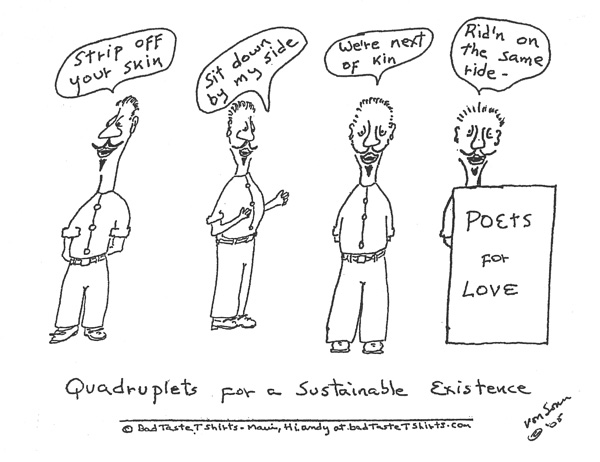 Strip off
your skin
Sit down
by my side
We're next
of kin
Rid'n on
the same
ride-
POEts
for
LOVE
Quadruplets for a Sustainable Existence
© BadTasteTshirts - Maui, Hi. andy at badTasteTShirts.com
© '05